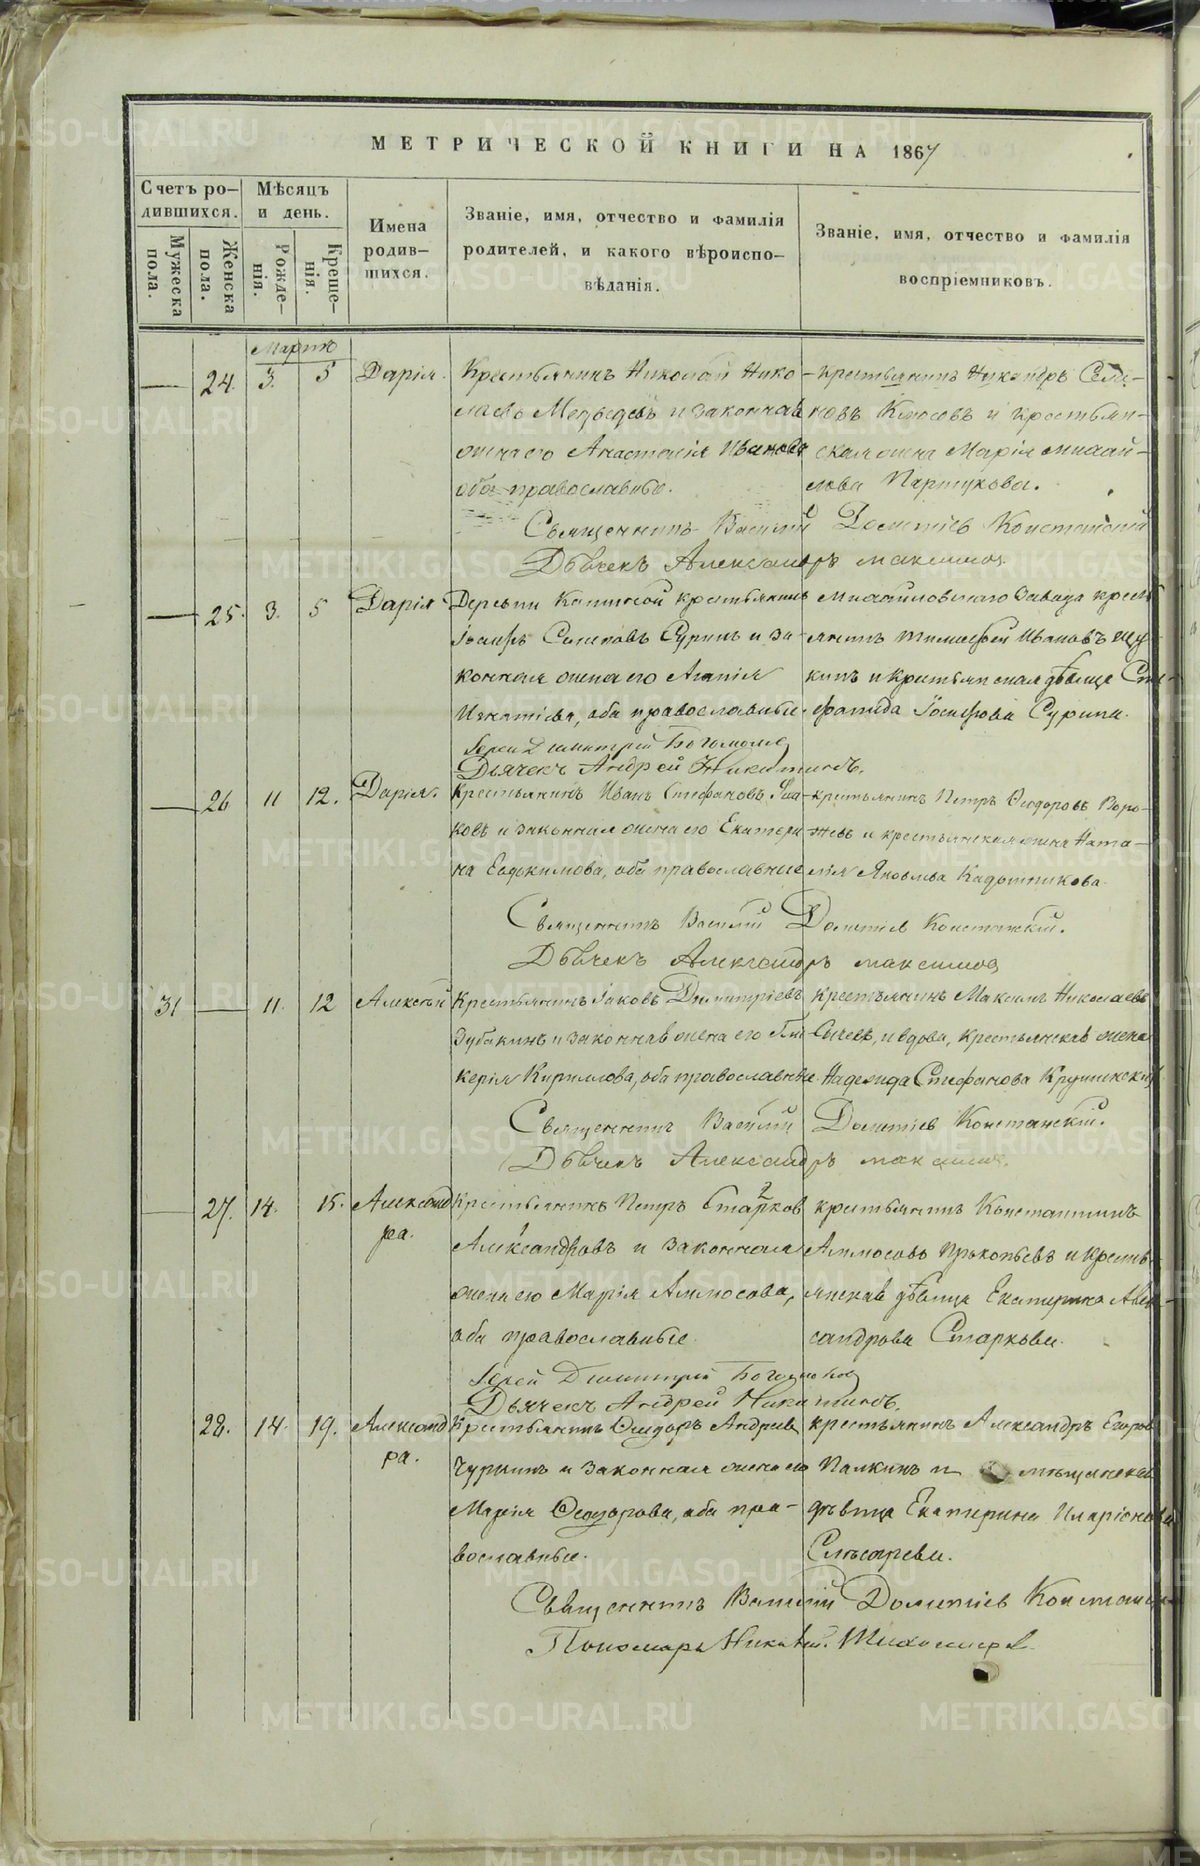 МЕТРИЧЕСКОЙ КНИГИ НА 1867
Счетъ родившихся.
Мѣсяцъ и день.
Мужеска пола.
Женска пола.
Рожденія.
Крещенія.
Имена родив-
шихся.
Званіе, имя, отчество и фамилія
родителей, и какого вѣроиспо-
вѣданія.
Званіе, имя, отчество и фамилія
воспріемниковъ.
Мартъ
24. 3. 5 Дарія. Крестьянинъ Николай Нико-
лаевъ Медведевъ и законная
жена его Анастасія Иванова
оба православные.
крестьянинъ Никандръ Семе-
новъ и крестьян-
ская жена Марія Михай-
лова Партукова.
Священникъ Василій Дометіевъ Констанскій
Дьячекъ Александръ Максимов
25. 3. 5 Дарія Деревни крестьянинъ
Іосифъ Суринъ и за-
конная жена его Агапія
Игнатіева, оба православные.
Михайловскаго завода крест
янинъ Тимофей Ивановъ Щу
кинъ и крестьянская дѣвица Сте
фанида Іосифова Сурина.
Іерей Димитрій Богомолов
Дьячекъ Андрей Никитинъ.
26 11 12. Дарія. Крестьянинъ Иванъ Стефановъ
ковъ и законная жена его Екатери
на Евдокимова, оба православные
крестьянинъ Петръ Ѳеодоровъ Воро-
жевъ и крестьянская жена Ната-
лія Яковлева Кадошникова.
Священникъ Василій Дометіев Констанскій.
Дьячекъ Александръ Максимов
31 11. 12 Алексѣй Крестьянинъ Іаковъ Димитріевъ
Зубакинъ и законная жена его Гли
керія Кириллова, оба православные.
Крестьянинъ Максимъ Николаевъ
и вдова, крестьянская жена
Надежда Стефанова
Священникъ Василій Дометіевъ Констанскій.
Дьячекъ Александръ Максимов.
27. 14. 15. Александ
ра.
Крестьянинъ Петръ Старков
Александровъ и законная
жена его Марія Аммосова,
оба православные.
крестьянинъ Константинъ
Аммосовъ Прокопьевъ и крестъ-
янская дѣвица Екатерина Алек-
сандрова Старкова.
Іерей Димитрій Богомолов
Дьячекъ Андрей Никитинъ.
28. 14. 19. Александ
ра.
Крестьянинъ Ѳедоръ Андреев
Чуркинъ и законная жена его
Марія Ѳедорова, оба пра-
вославные.
крестьянинъ Александръ Егоров
Палкинъ и мѣщанская
дѣвица Екатерина Иларіонова
Слѣсарева.
Священникъ Василій Дометіевъ Констанскій
Пономарь Николай Тихомиров